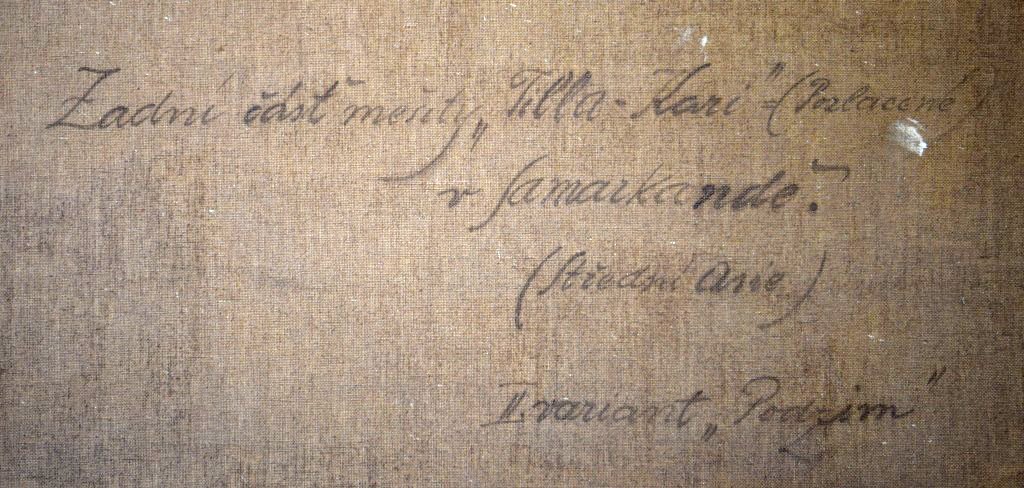 Zadní část mešity „Tilla-Kari" = (Pozlacené)
v Samarkandě.
(Střední Asie)
II. variant „Podzim"